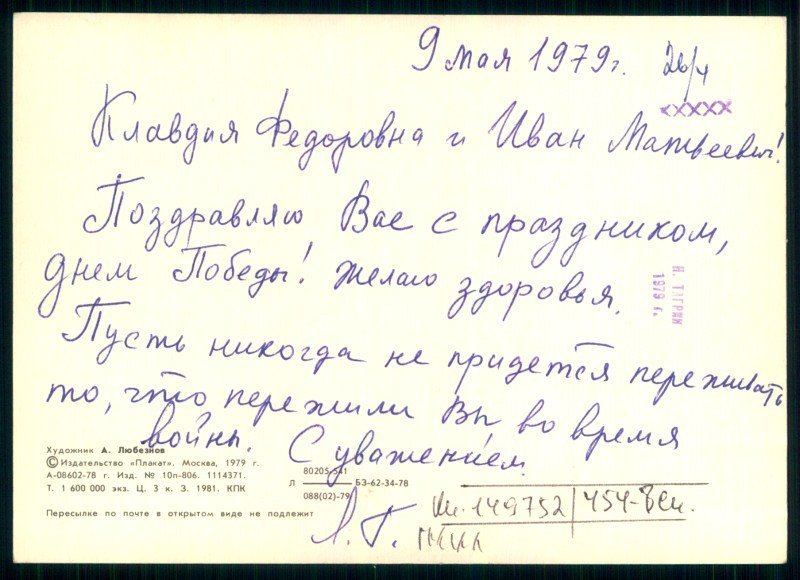 9 мая 1979г. 26/4
xxxxx
Клавдия Федоровна и Иван Матвеевич!
Поздравляю Вас с праздником,
днем Победы! Желаю здоровья.
Н. ТАГРИН
1979 г.
Пусть никогда не придется переживать
то, что пережили Вы во время
войны. С уважением
Художник А. Любезнов
© Издательство «Плакат». Москва, 1979 г.
А-08602-78 г. Изд. № 10п-806. 1114371.
Т. 1 600 000 экз. Ц. 3 к. З. 1981. КПК
Л 80205-541
088(02)-79 БЗ-62-34-78
Пересылке по почте в открытом виде не подлежит
Л.Г.
149752/454-